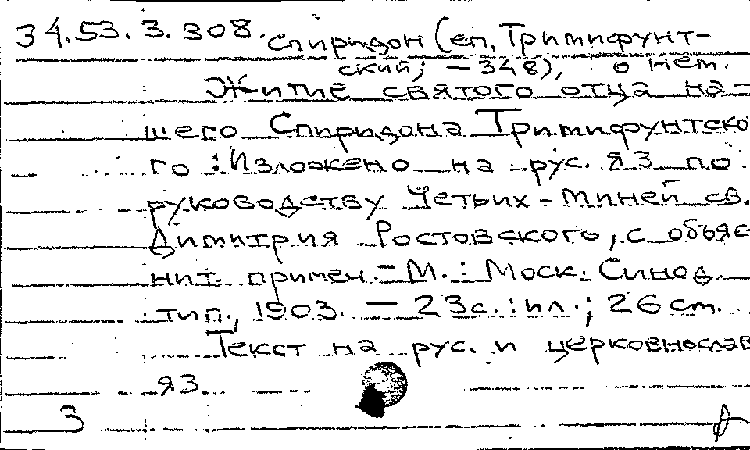 34.53.3.308. Спиридон (еп. Тримифунт-
ский; – 348), о нем.
Житие святого отца на-
шего Спиридона Тримифунтско
го : Изложено на рус. яз по
руководству Четьих-Миней св.
Димитрия Ростовского, с объяс
нит. примен. – М. : Моск. Синод.
тип., 1903. – 23с. : ил. ; 26 см.
Текст на рус. и церковнослав
яз.
3